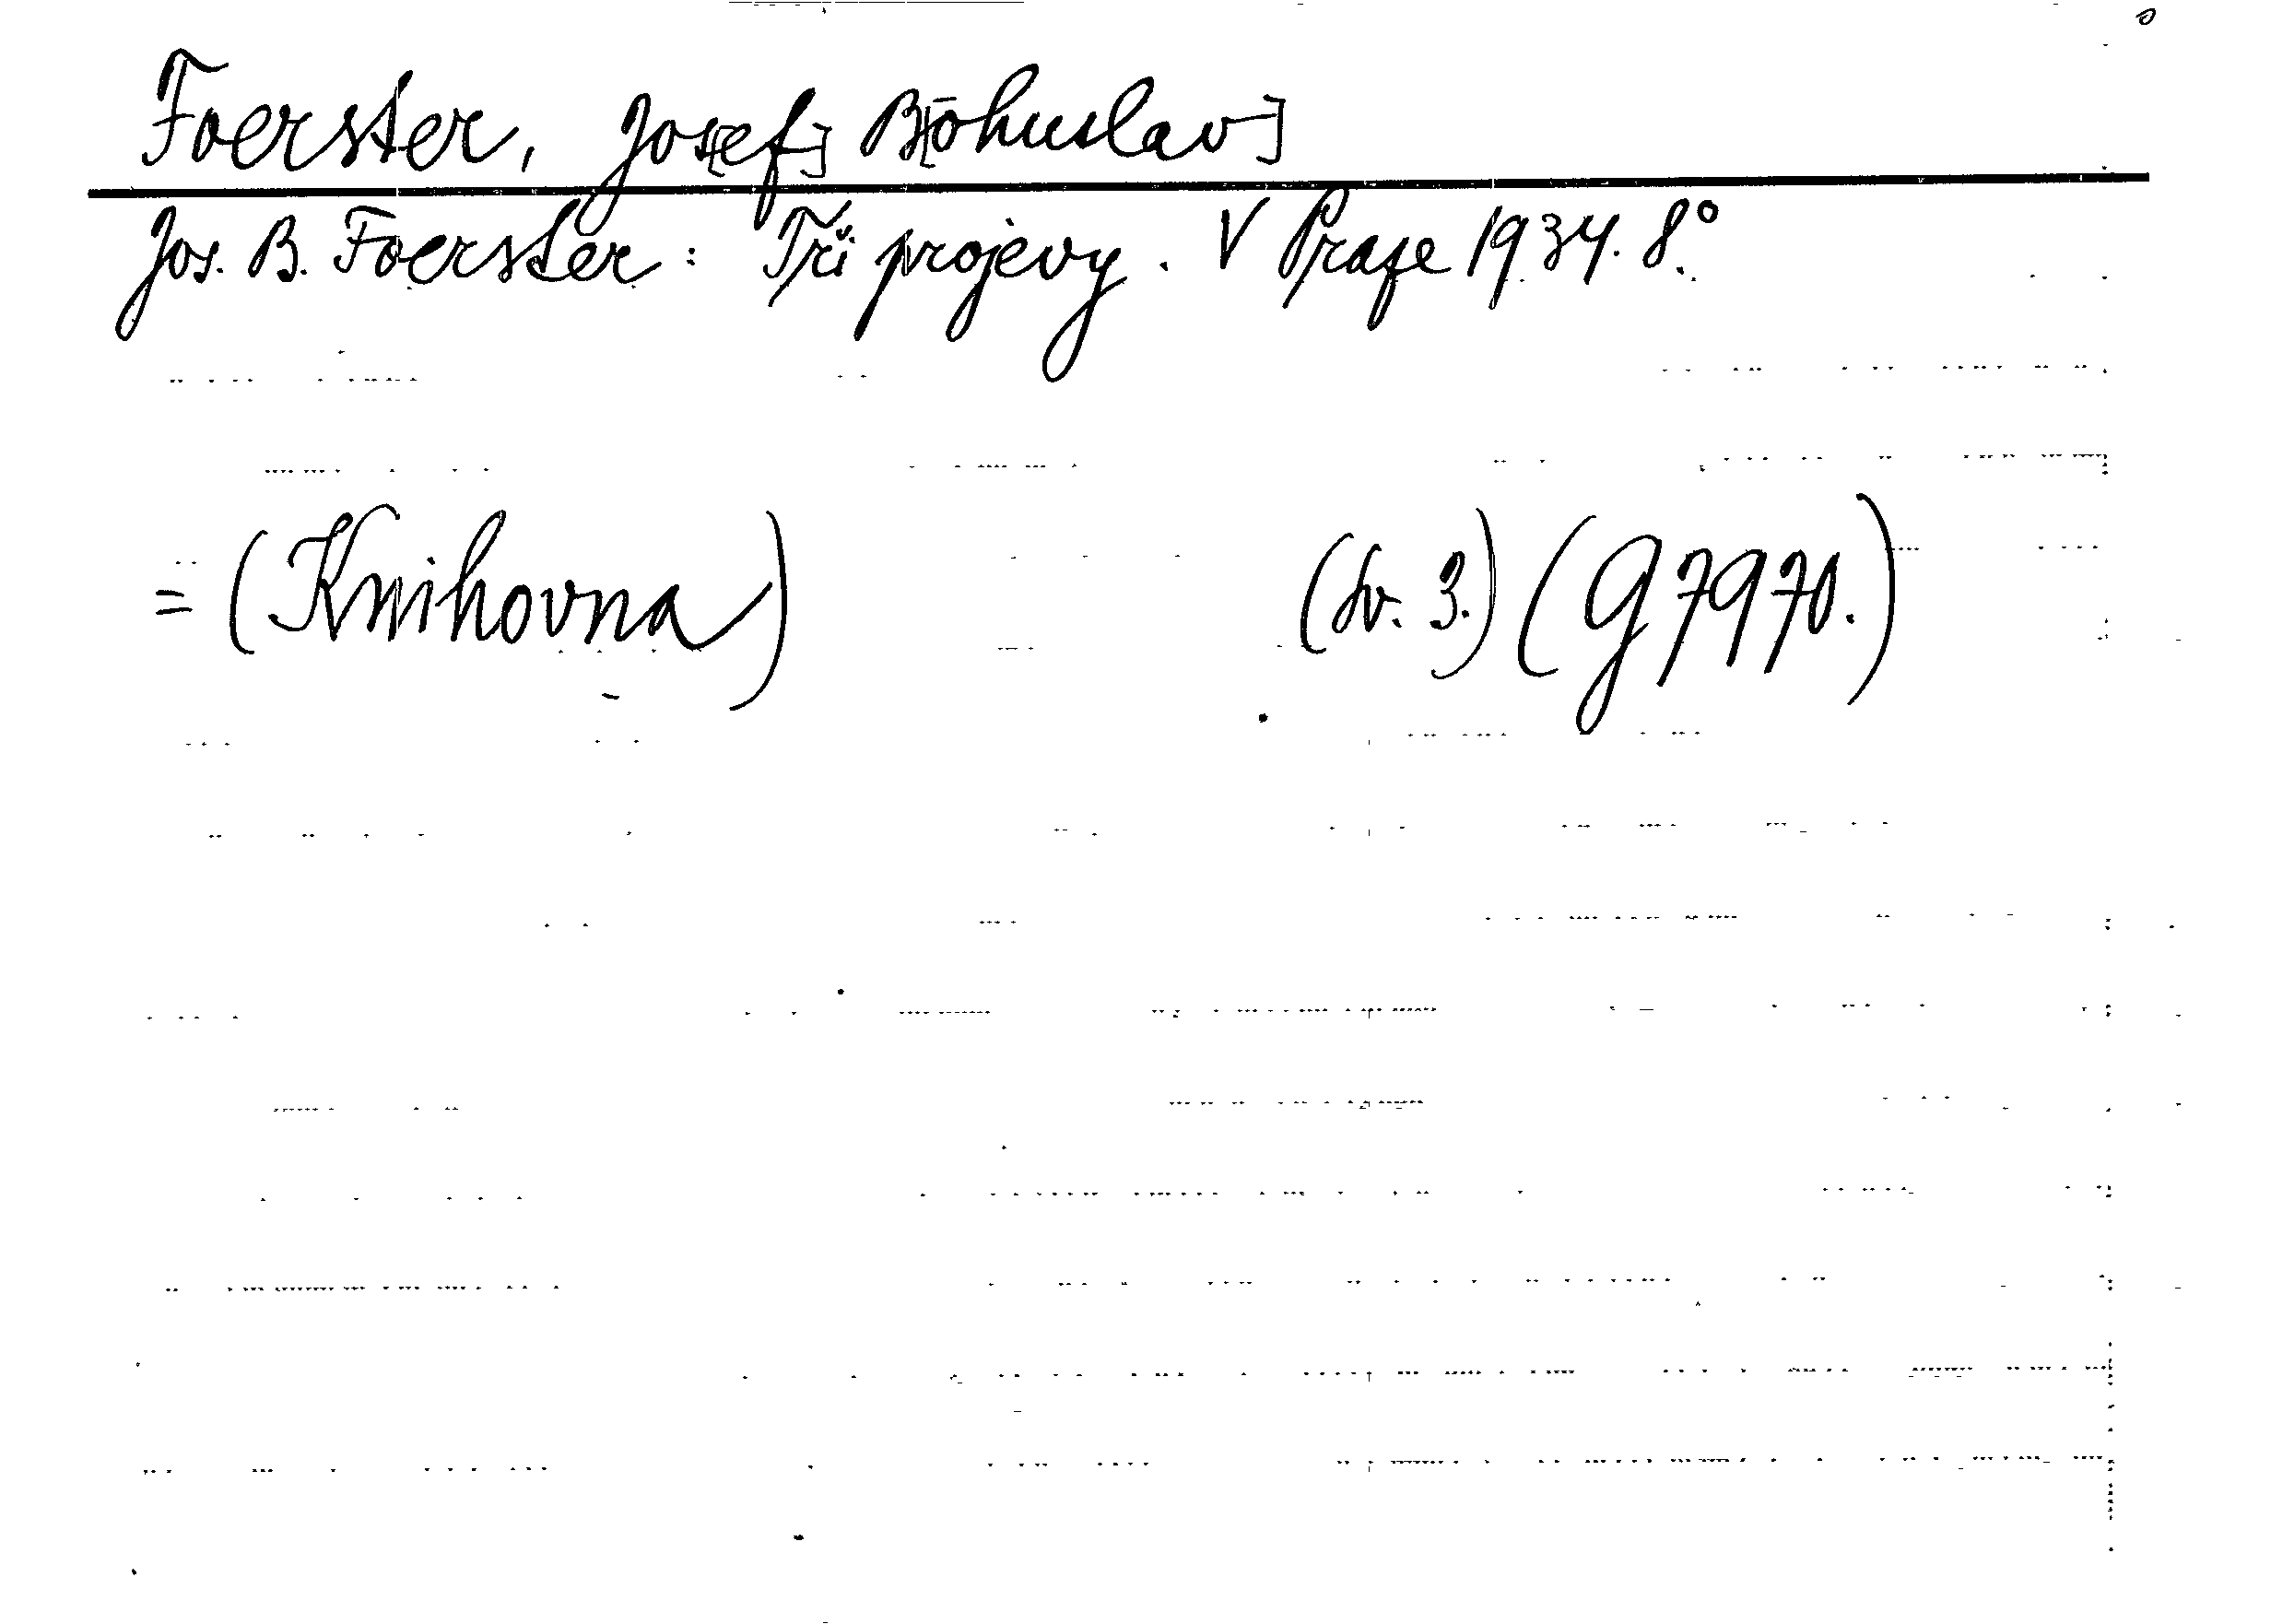 Foerster, Jos[ef] B[ohuslav]
Jos. B. Foerster: Tři projevy. V Praze 1934. 8°.
= (Knihovna) (Sv. 3.) (G 7970.)